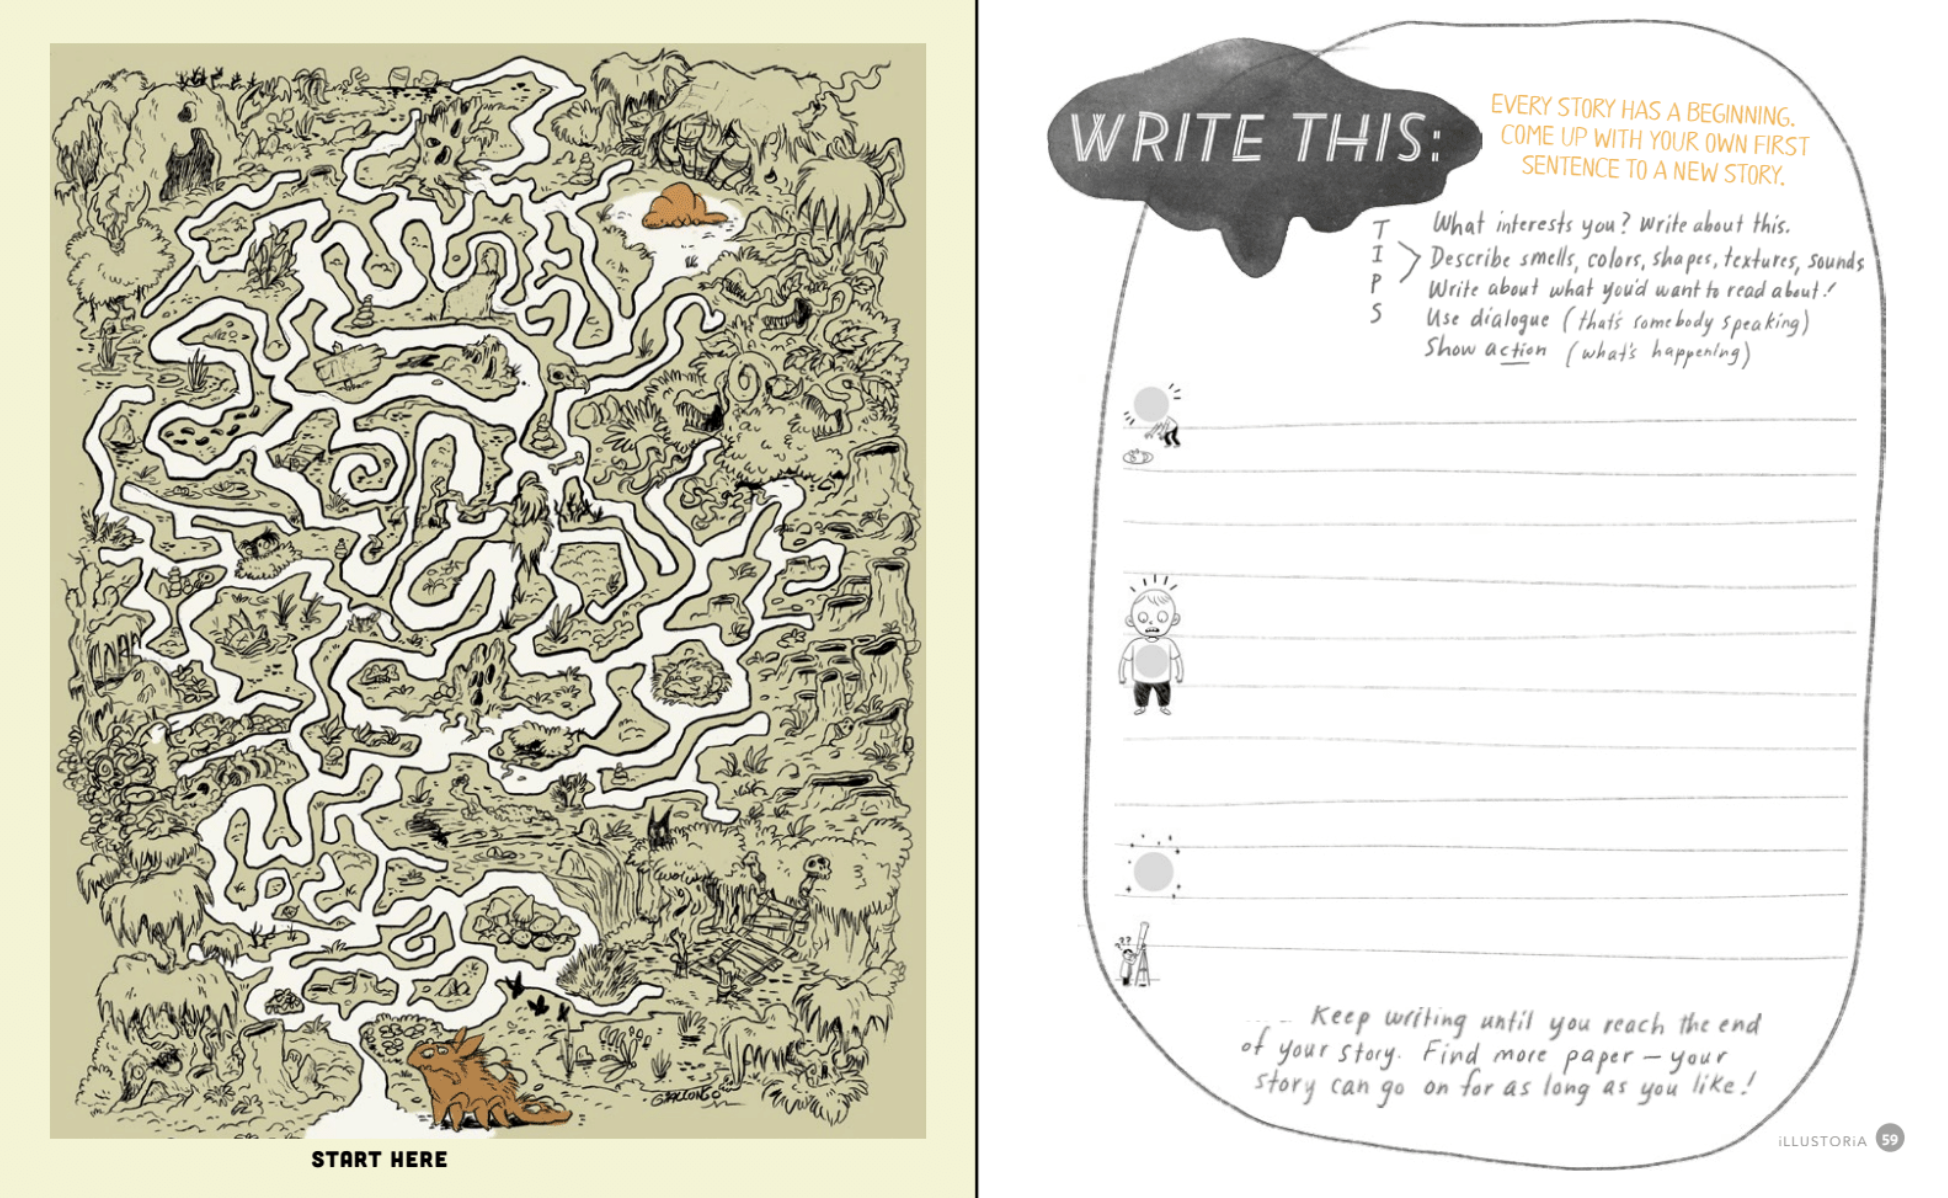 GIALLONGO
START HERE
WRITE THIS:
EVERY STORY HAS A BEGINNING.
COME UP WITH YOUR OWN FIRST
SENTENCE TO A NEW STORY.
TIPS
What interests you? Write about this.
Describe smells, colors, shapes, textures, sounds
Write about what you'd want to read about!
Use dialogue (that's somebody speaking)
Show action (what's happening)
???
Keep writing until you reach the end
of your story. Find more paper – your
story can go on for as long as you like!
iLLUSTORiA 59